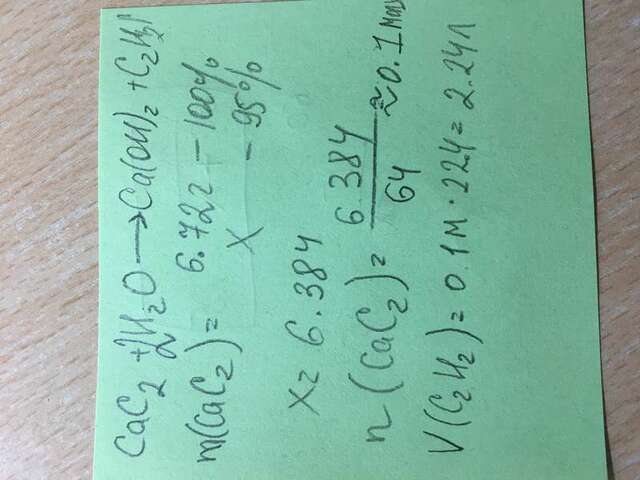 CaC₂ + 2H₂O → Ca(OH)₂ + C₂H₂↑
m(CaC₂) = 6.72г – 100%
x – 95%
x = 6.384
n (CaC₂) = 6.384 / 64 ≈ 0.1 моль
V(C₂H₂) = 0.1м · 22.4 = 2.24л